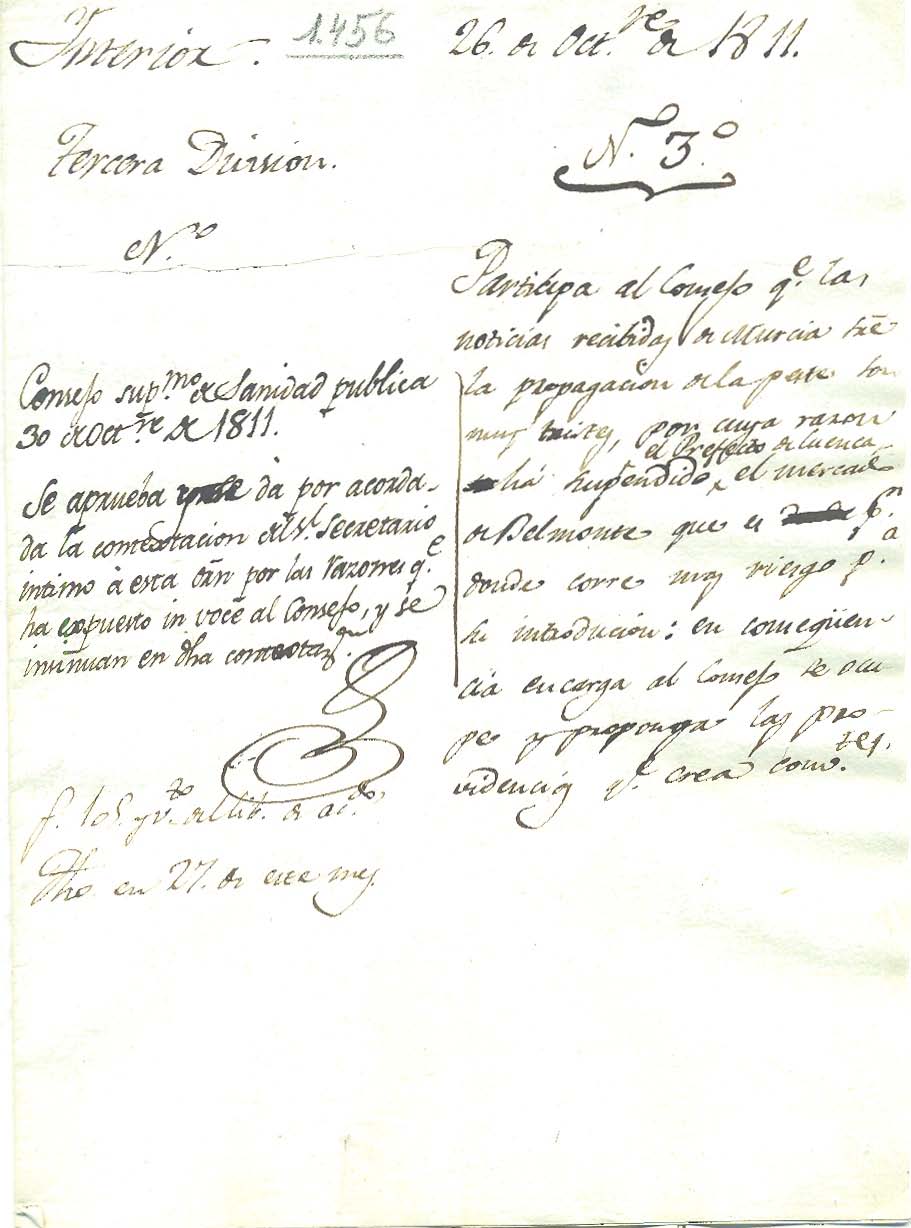 Interior. 1.456 26. de Oct.re de 1811.
Tercera Division.
N.º 3.º
N.º
Participa al Consejo q.e las
noticias recibidas de Murcia sre
la propagacion de la peste son
muy tristes, por cuya razon
el Prefecto de Cuenca
há suspendido el mercado
de Belmonte que es p.r
donde corre mas riesgo p.a
su introducion: en conseqüen-
cia encarga al Consejo se ocu-
pe y proponga las pro-
videncias q.e crea conv.tes.
Consejo sup.mo de Sanidad publica
30 de Oct.re de 1811.
Se aprueba y se da por acorda-
da la contestacion del Sr. Secretario
intimo à esta orn por las razones q.e
ha expuesto in voce al Consejo, y se
insinuan en dha contestaz.on
f. 105. y v.to del lib. de ac.dos
Dho en 27. de este mes.